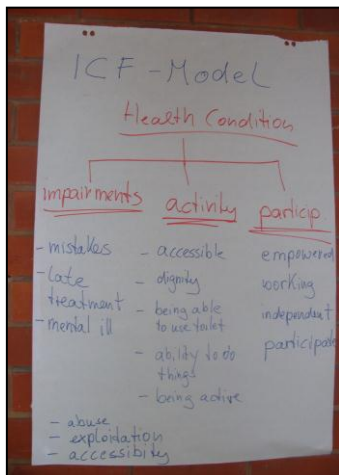 ICF - Model
Health Condition
impairments activity particip.
- mistakes
- late
treatment
- mental ill
- accessible
- dignity
- being able
to use toilet
- ability to do
things
- being active
empowered
working
independent
participate
- abuse
- exploidation
- accessibity